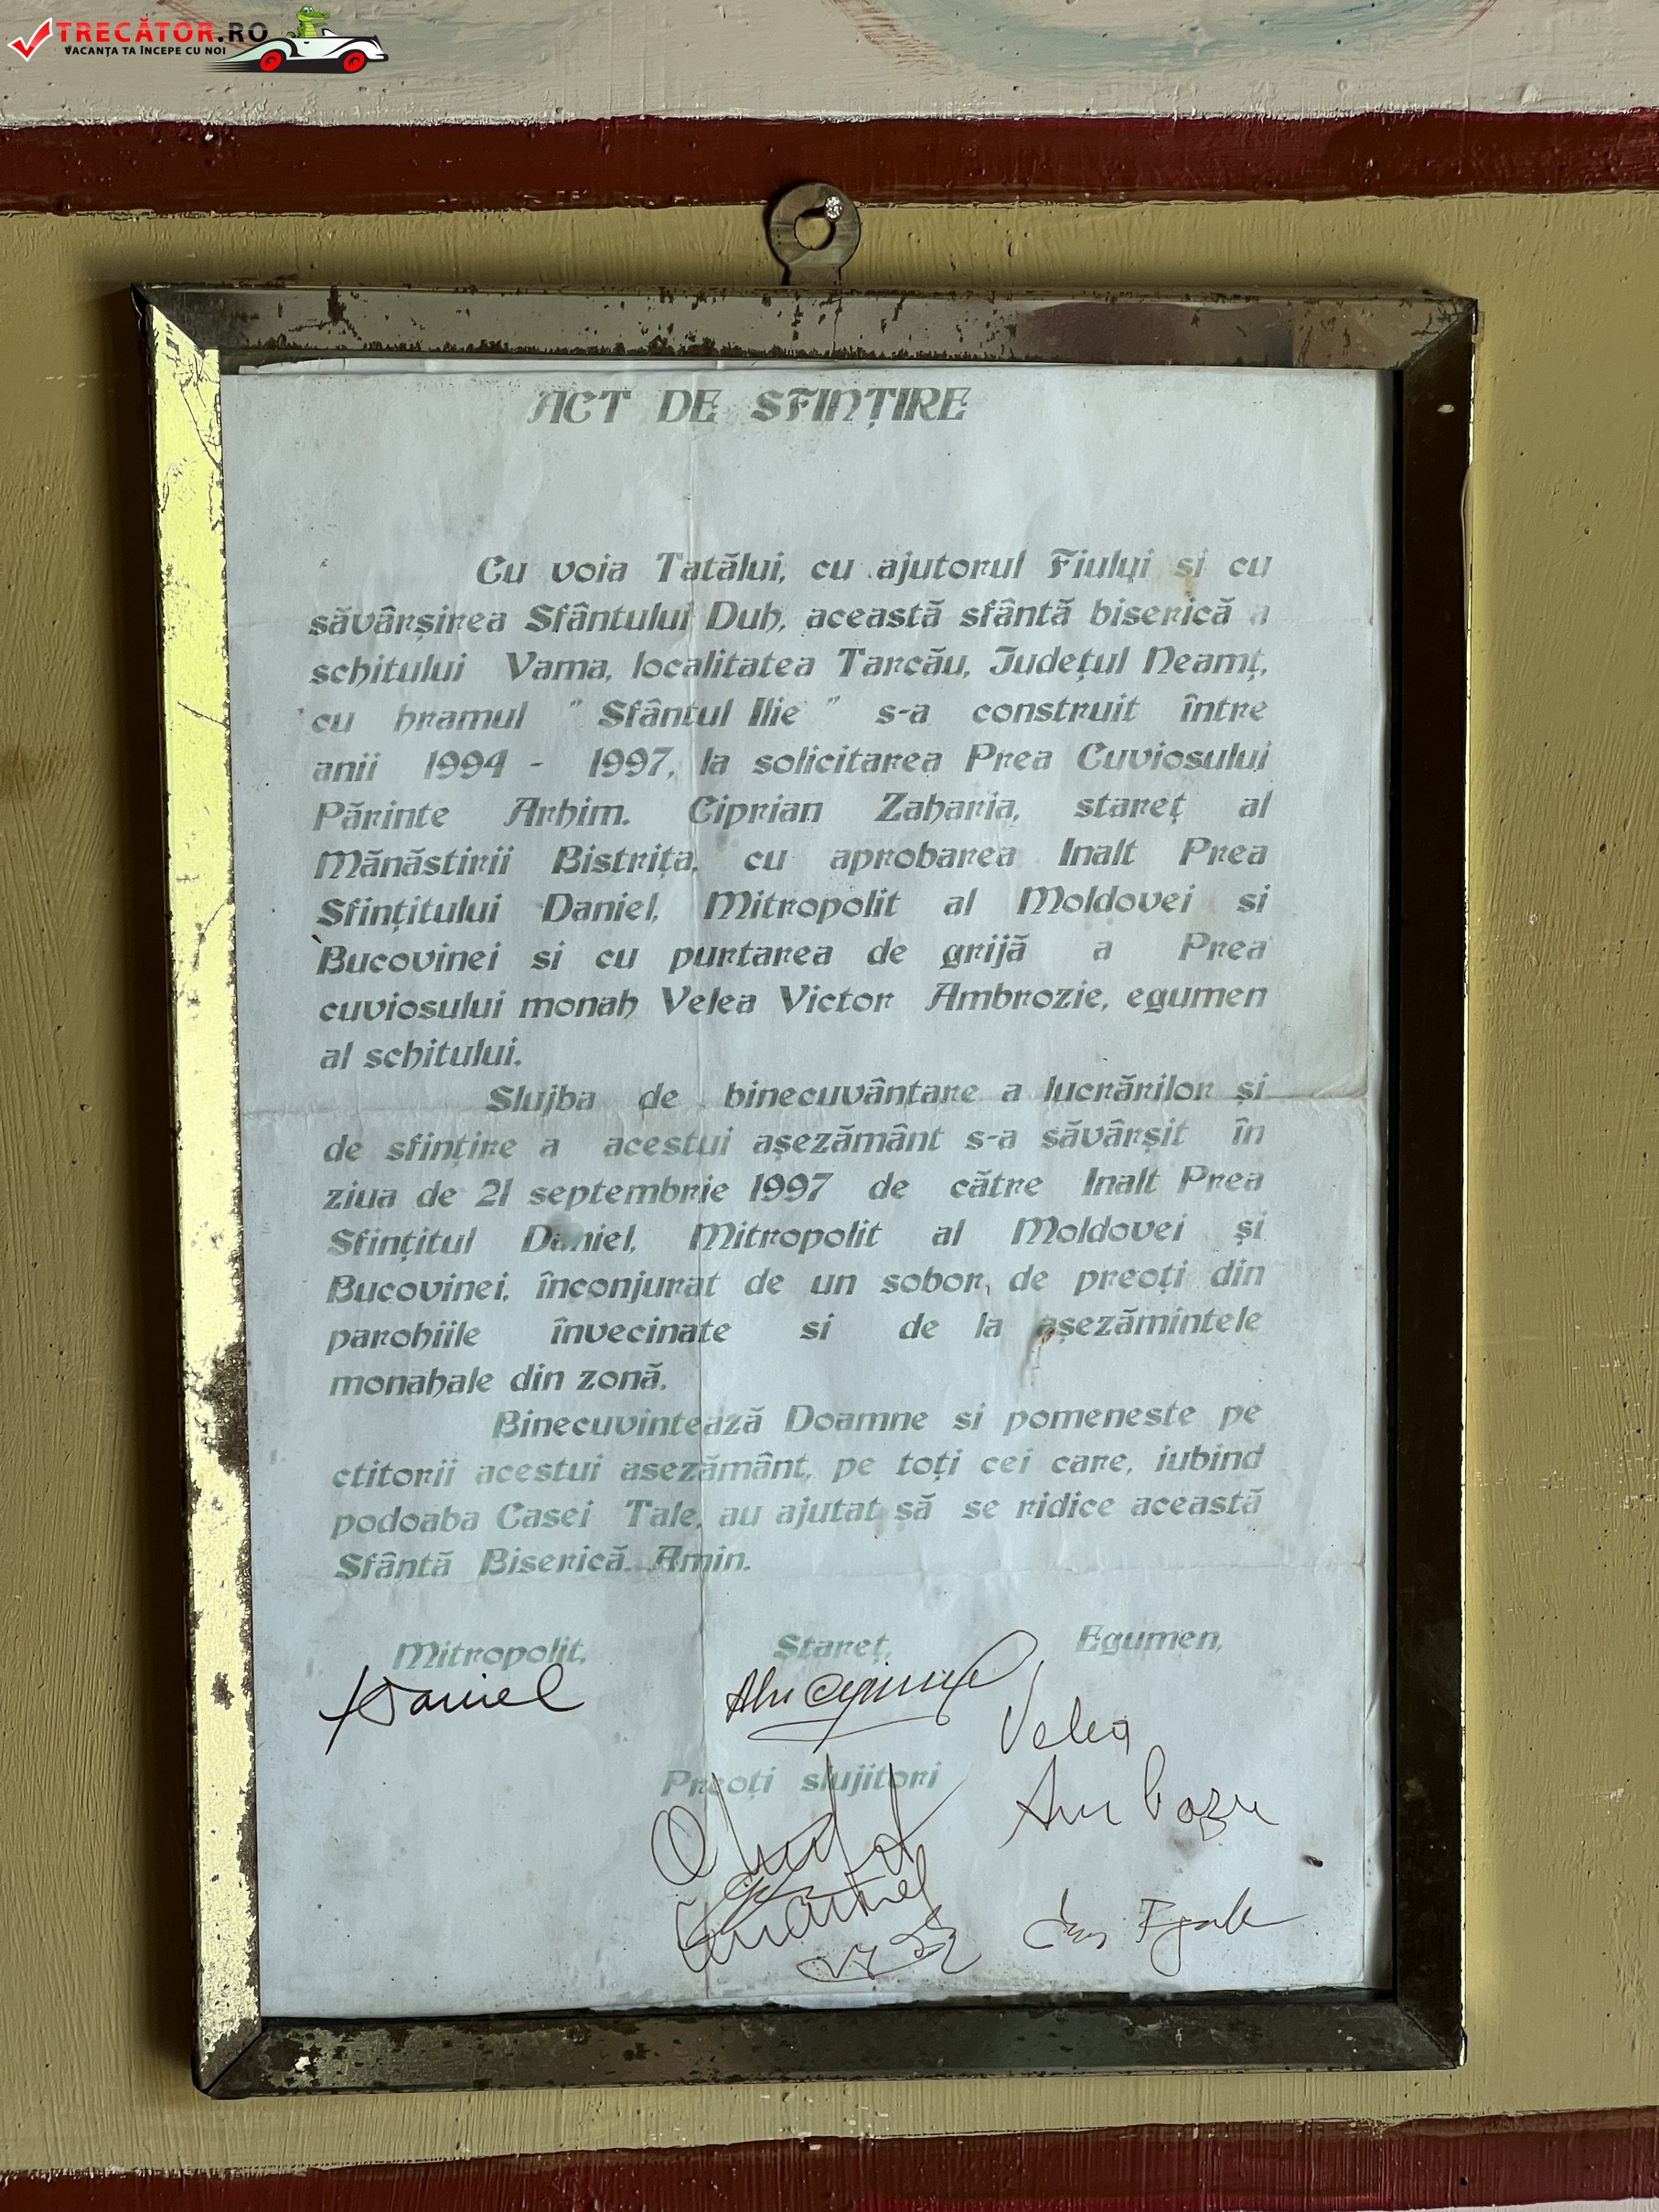 TRECĂTOR.RO
VACANȚA TA ÎNCEPE CU NOI
ACT DE SFINȚIRE
Cu voia Tatălui, cu ajutorul Fiului si cu
săvârșirea Sfântului Duh, această sfântă biserică a
schitului Vama, localitatea Tarcău, Județul Neamț,
cu hramul " Sfântul Ilie " s-a construit între
anii 1994 - 1997, la solicitarea Prea Cuviosului
Părinte Arhim. Ciprian Zaharia, stareț al
Mănăstirii Bistrița, cu aprobarea Inalt Prea
Sfințitului Daniel, Mitropolit al Moldovei si
Bucovinei si cu purtarea de grijă a Prea
cuviosului monah Velea Victor Ambrozie, egumen
al schitului.
Slujba de binecuvântare a lucrărilor și
de sfințire a acestui așezământ s-a săvârșit în
ziua de 21 septembrie 1997 de către Inalt Prea
Sfințitul Daniel, Mitropolit al Moldovei și
Bucovinei, înconjurat de un sobor de preoți din
parohiile învecinate si de la așezămintele
monahale din zonă.
Binecuvintează Doamne si pomeneste pe
ctitorii acestui asezământ, pe toți cei care, iubind
podoaba Casei Tale, au ajutat să se ridice această
Sfântă Biserică. Amin.
Mitropolit, Stareț, Egumen,
Daniel
Velea
Preoți slujitori